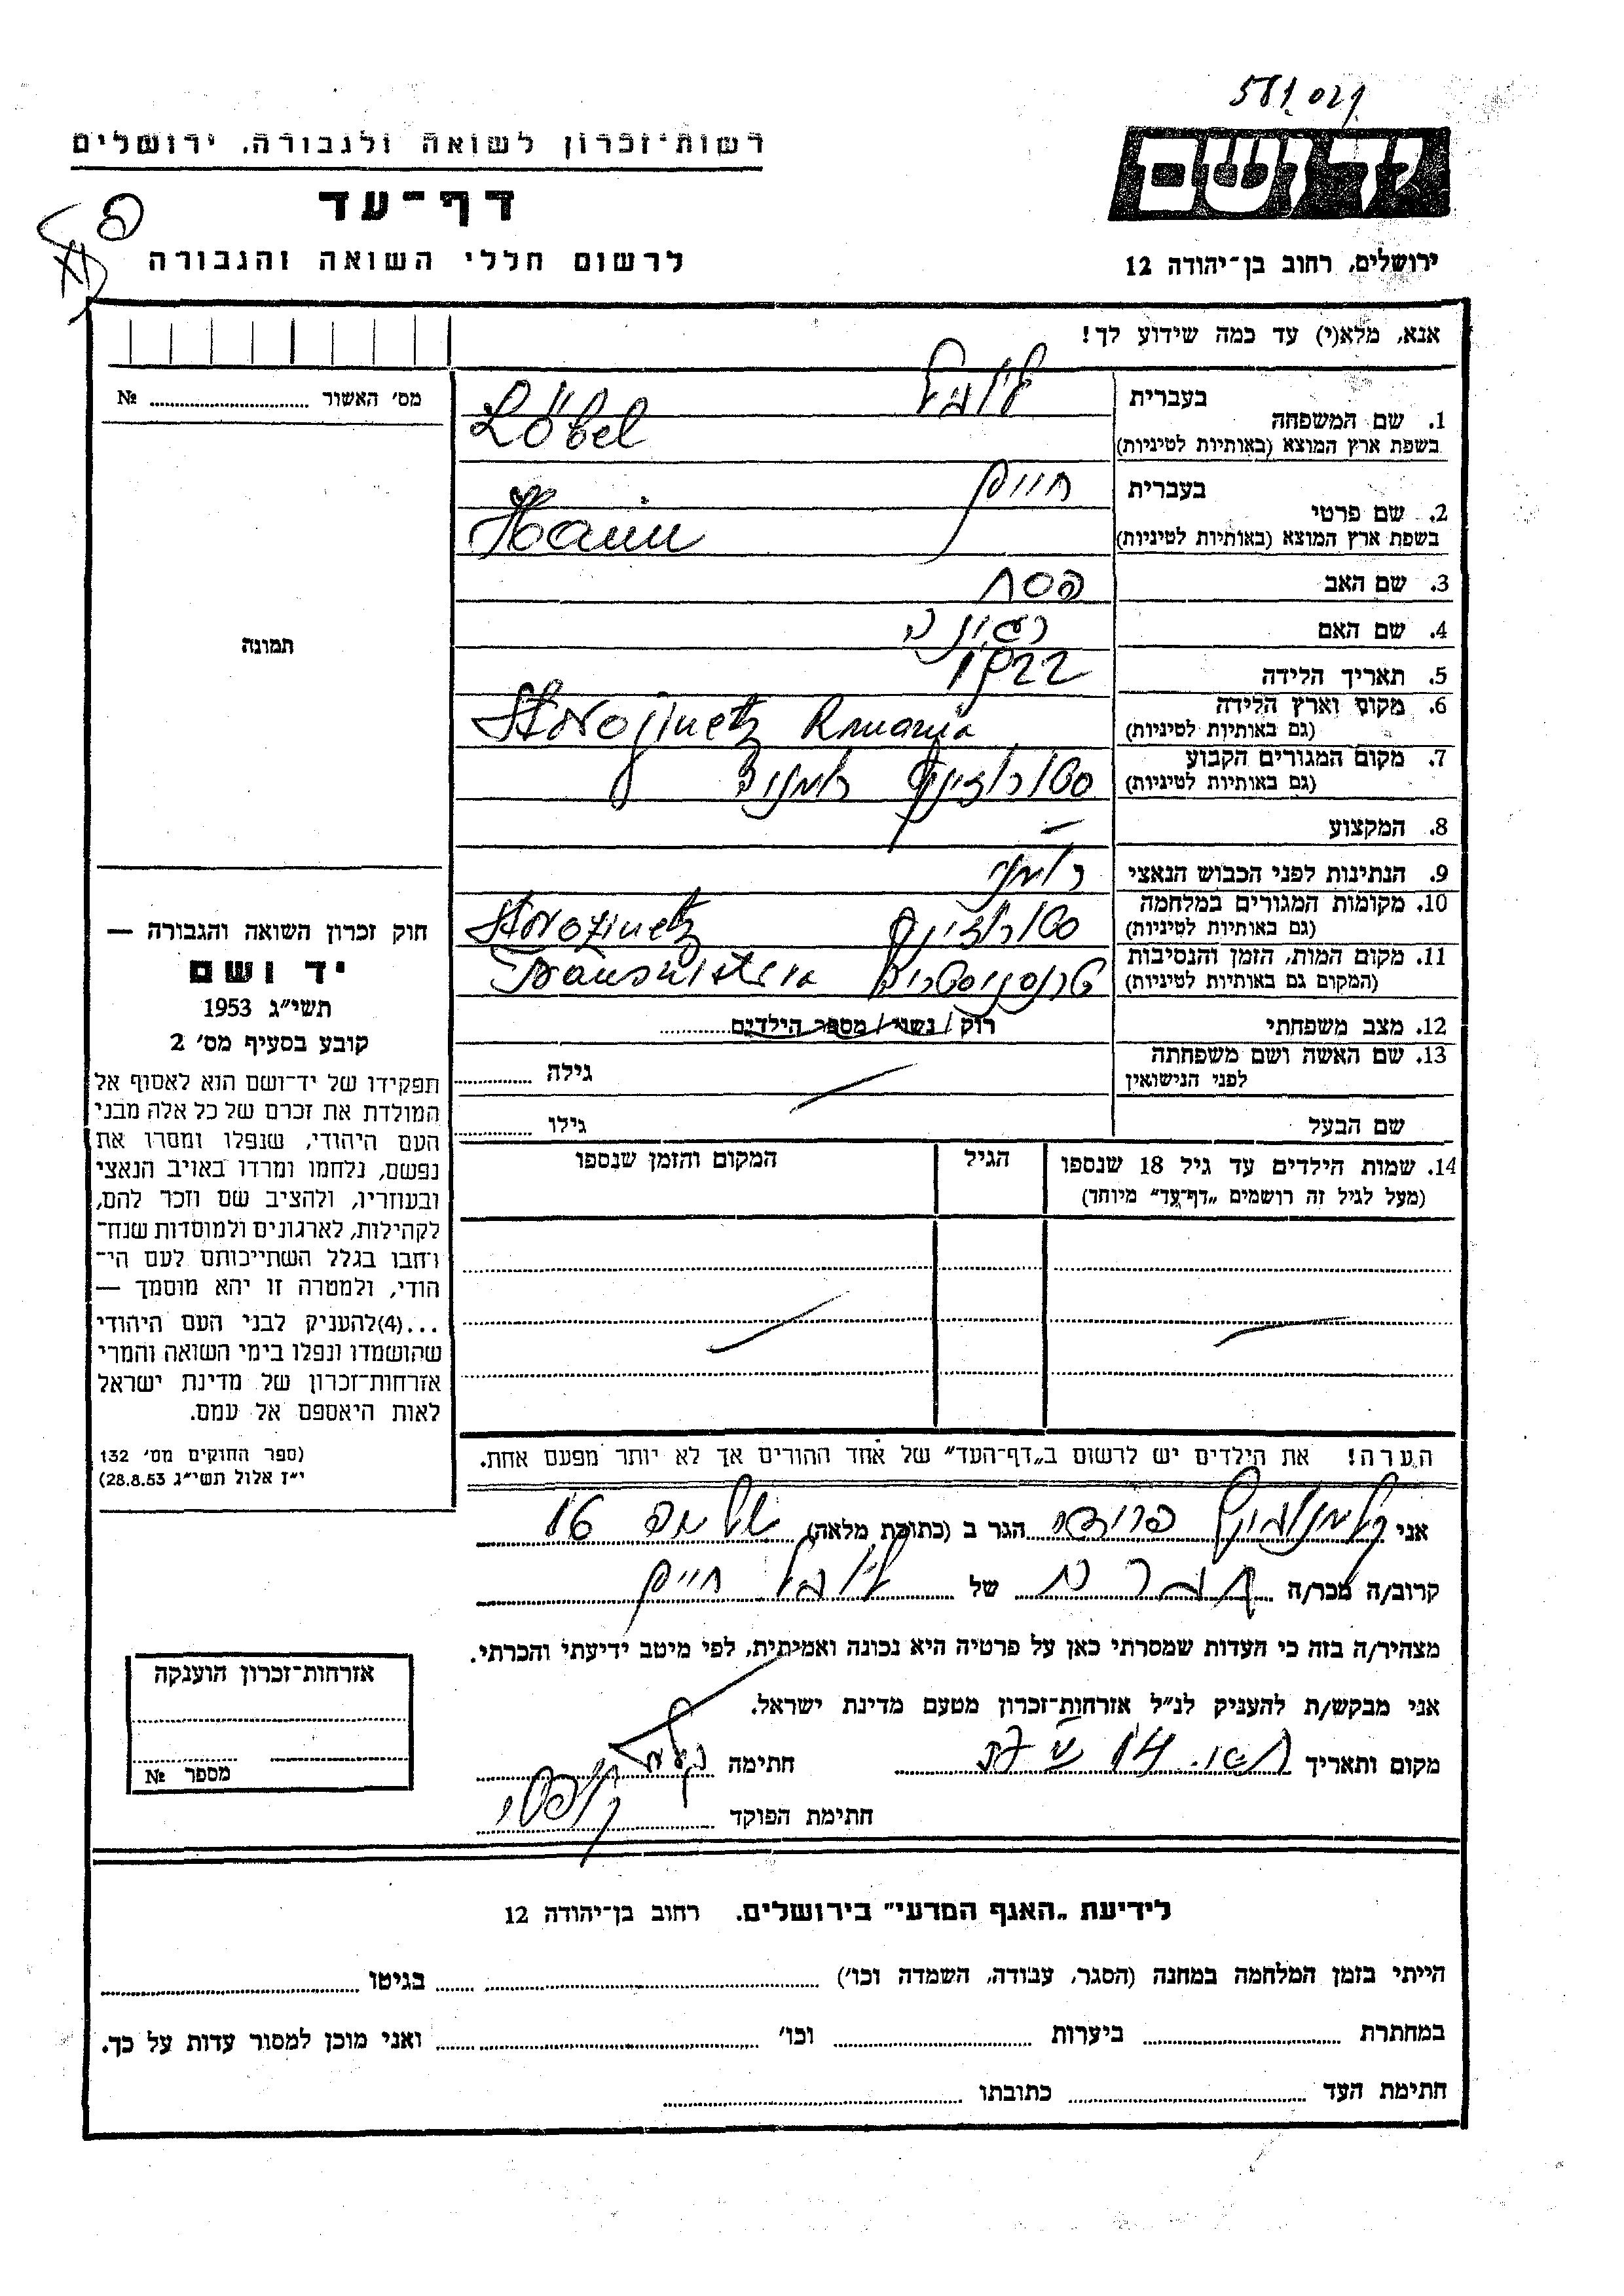 581 021
ידושם
רשות-זכרון לשואה ולגבורה, ירושלים
דף-עד
לרשום חללי השואה והגבורה
ירושלים, רחוב בן-יהודה 12
אנא, מלא(י) עד כמה שידוע לך!
מס' האשור № ........
תמונה
חוק זכרון השואה והגבורה —
יד ושם
תשי"ג 1953
קובע בסעיף מס' 2
תפקידו של יד-ושם הוא לאסוף אל
המולדת את זכרם של כל אלה מבני
העם היהודי, שנפלו ומסרו את
נפשם, נלחמו ומרדו באויב הנאצי
ובעוזריו, ולהציב שם וזכר להם,
לקהילות, לארגונים ולמוסדות שנח-
רחבו בגלל השתייכותם לעם הי-
הודי, ולמטרה זו יהא מוסמך —
...(4)להעניק לבני העם היהודי
שהושמדו ונפלו בימי השואה והמרי
אזרחות-זכרון של מדינת ישראל
לאות היאספם אל עמם.
(ספר החוקים מס' 132
י"ז אלול תשי"ג 28.8.53)
בעברית לובל
1. שם המשפחה
בשפת ארץ המוצא (באותיות לטיניות) Löbel
בעברית חיים
2. שם פרטי
בשפת ארץ המוצא (באותיות לטיניות) Haim
3. שם האב פסח
4. שם האם
5. תאריך הלידה 1922
6. מקום וארץ הלידה Storojinetz Romania
(גם באותיות לטיניות)
7. מקום המגורים הקבוע סטורוז'ינץ רומניה
(גם באותיות לטיניות)
8. המקצוע —
9. הנתינות לפני הכבוש הנאצי רומני
10. מקומות המגורים במלחמה סטורוז'ינץ Storozinetz
(גם באותיות לטיניות)
11. מקום המות, הזמן והנסיבות טרנסניסטריה Transnistria
(המקום גם באותיות לטיניות)
12. מצב משפחתי רוק / נשוי / מספר הילדים........
13. שם האשה ושם משפחתה גילה ........
לפני הנישואין
שם הבעל גילו ........
14. שמות הילדים עד גיל 18 שנספו הגיל המקום והזמן שנספו
(מעל לגיל זה רושמים „דף-עד" מיוחד)
הערה! את הילדים יש לרשום ב„דף-העד" של אחד ההורים אך לא יותר מפעם אחת.
אני קלמנוביץ פרידה הגר ב (כתובת מלאה) 16
קרוב/ה מכר/ה של לובל חיים
מצהיר/ה בזה כי העדות שמסרתי כאן על פרטיה היא נכונה ואמיתית, לפי מיטב ידיעתי והכרתי.
אני מבקש/ת להעניק לנ"ל אזרחות-זכרון מטעם מדינת ישראל.
מקום ותאריך חתימה
חתימת הפוקד
אזרחות-זכרון הוענקה
מספר №
לידיעת „האגף המדעי" בירושלים. רחוב בן-יהודה 12
הייתי בזמן המלחמה במחנה (הסגר, עבודה, השמדה וכו') ........ בגיטו ........
במחתרת ........ ביערות ........ וכו' ........ ואני מוכן למסור עדות על כך.
חתימת העד ........ כתובתו ........